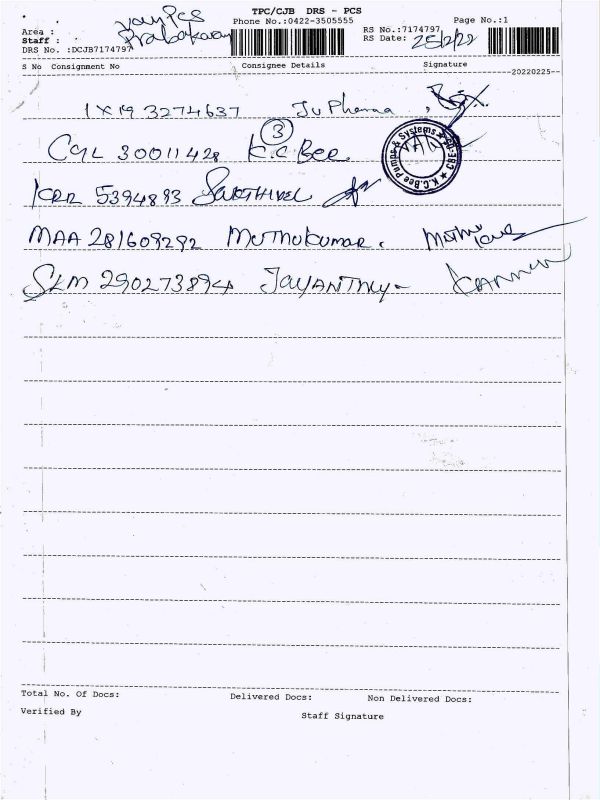 TPC/CJB DRS - PCS
Phone No.:0422-3505555 Page No.:1
Area : van PCS
Staff : Prabakaran
DRS No. :DCJB7174797
RS No.:7174797
RS Date: 25/2/22
S No Consignment No Consignee Details Signature
--20220225--
1X19 3274637 Ju Pharma
CGL 30011428 K.C Bee ③
K.C.Bee Pumps & Systems ★ CBE-35 ★
KRR 5394893 Sakthivel
MAA 281609292 Muthukumar.
SLM 290273894 Jayanthy - Kannan
Total No. Of Docs: Delivered Docs: Non Delivered Docs:
Verified By Staff Signature